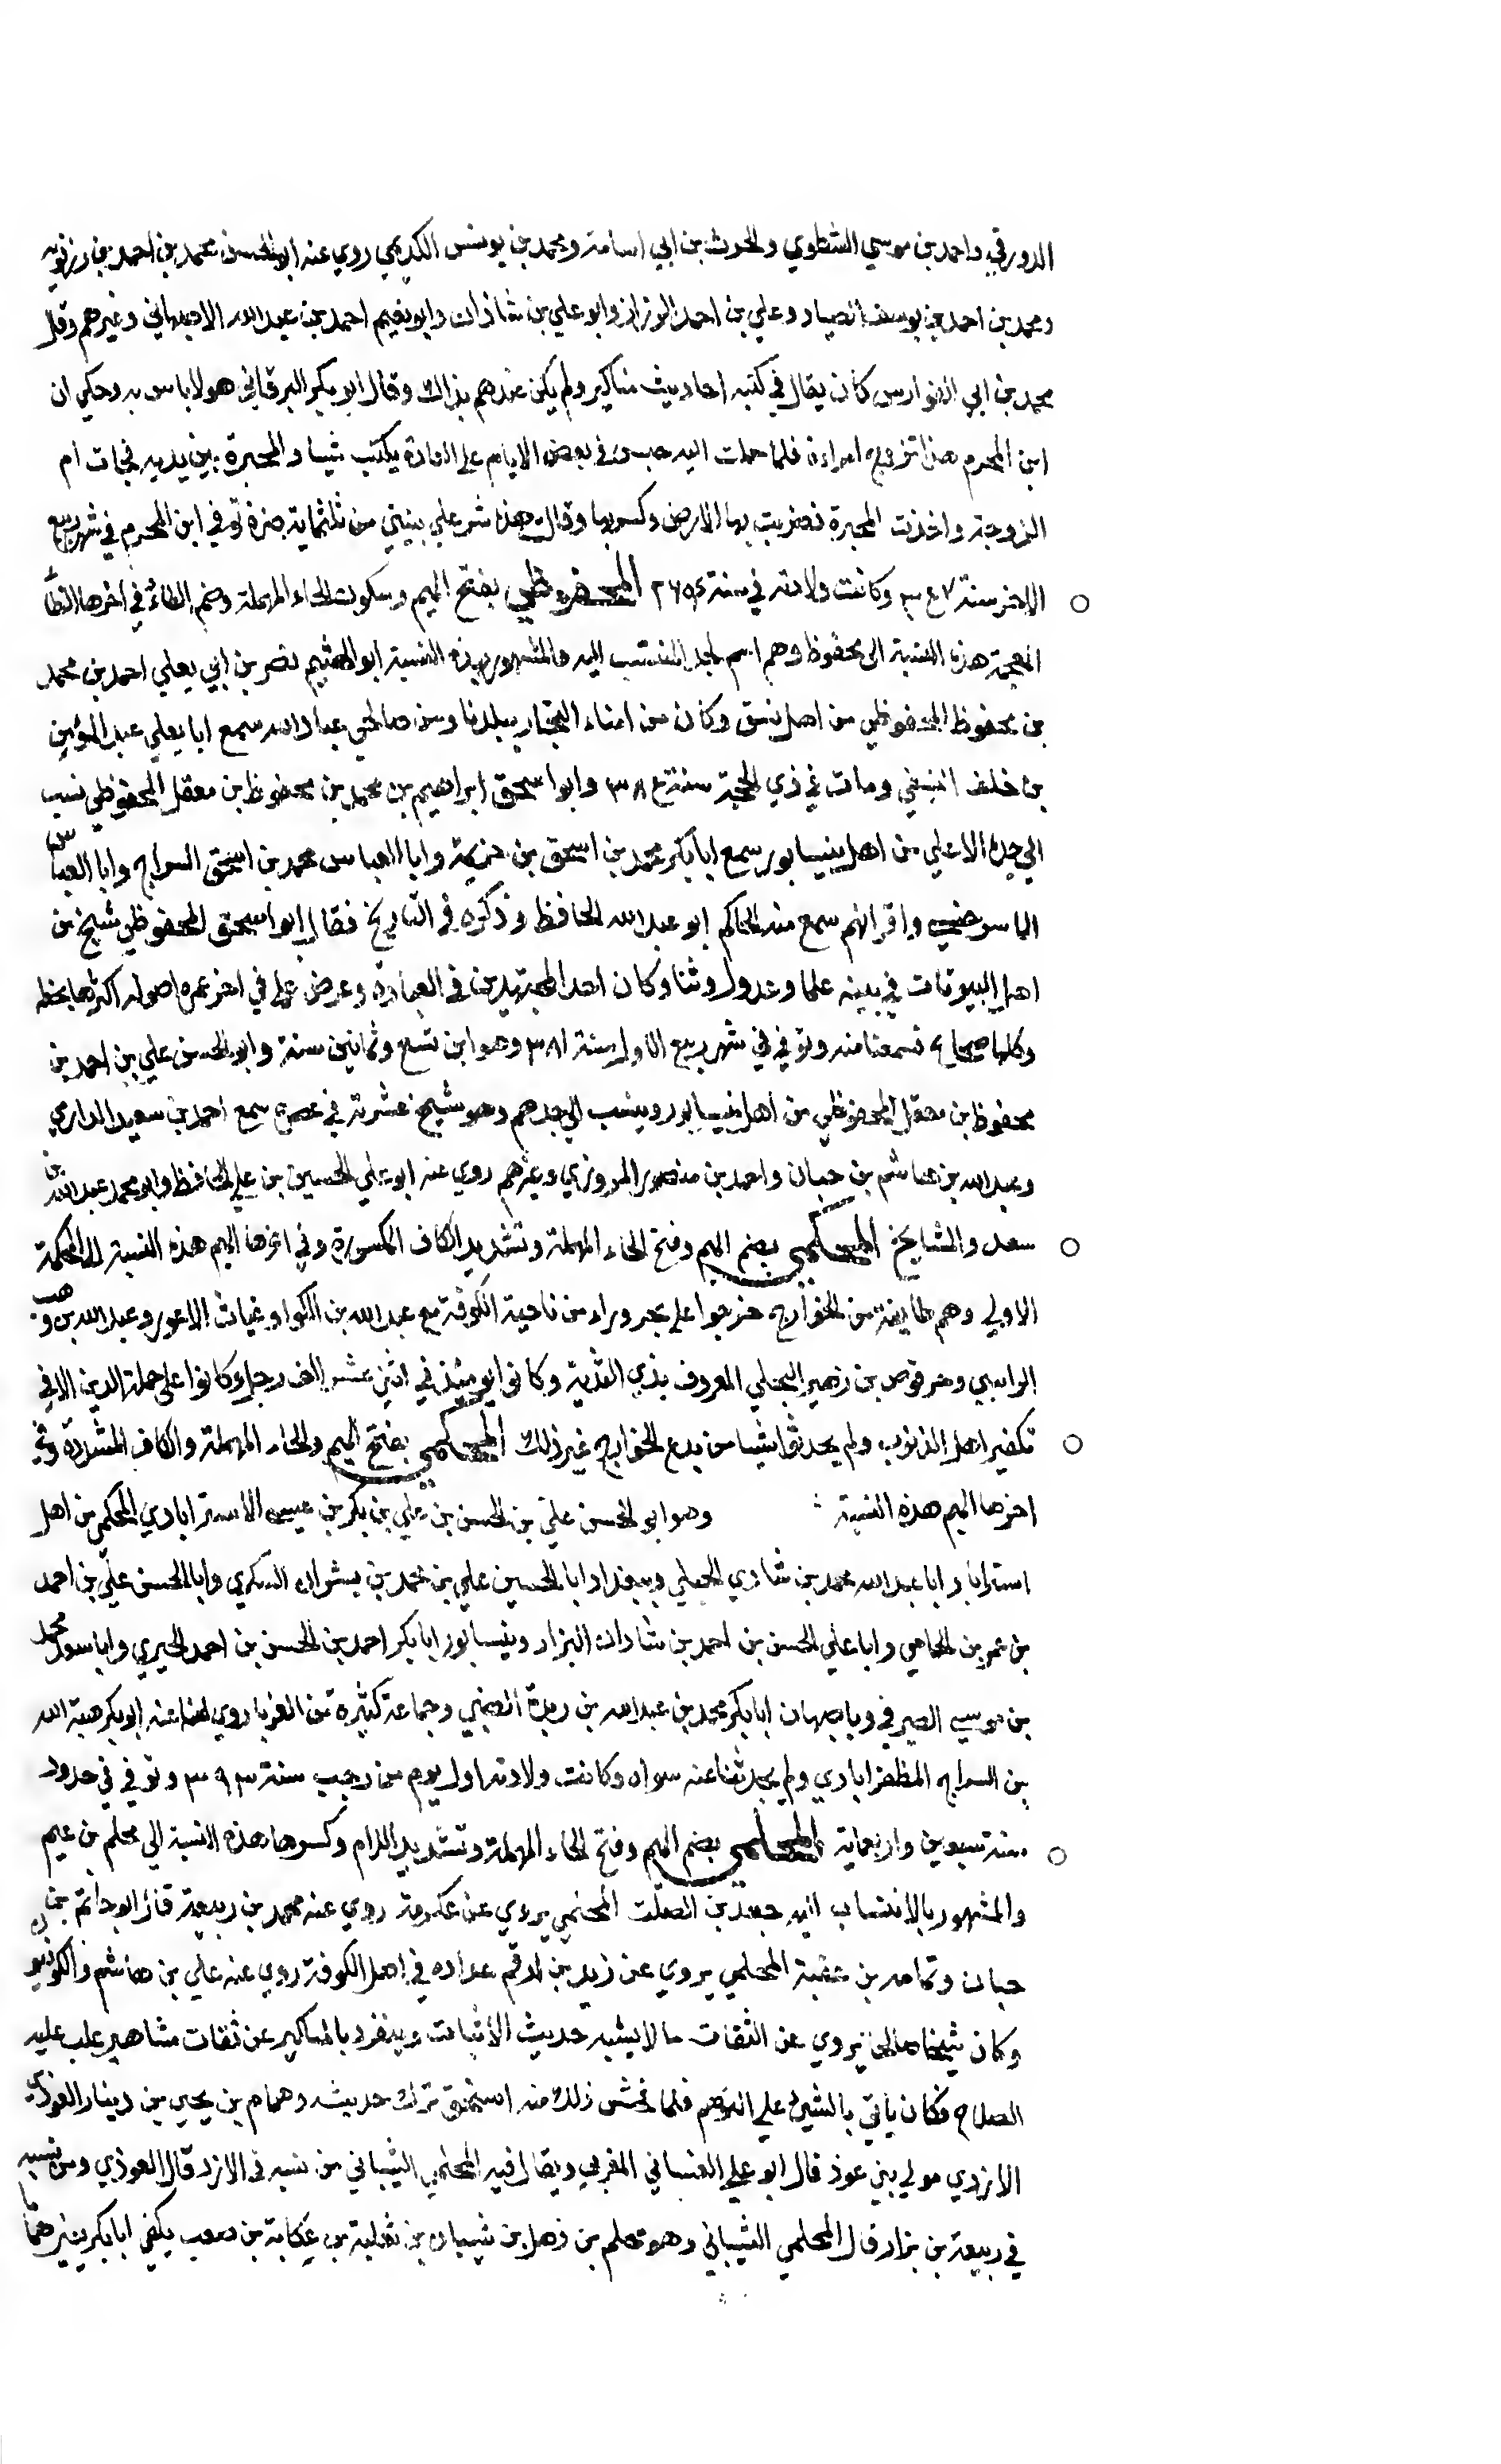 الدورقي واحمد بن موسي الشطوي والحرث بن ابي اسامة ومحمد بن يونس الكديمي روي عنه ابو الحسن محمد بن احمد بن رزقويه
ومحمد بن احمد بن يوسف الصياد وعلي بن احمد الرزاز وابو علي بن شاذان وابو نعيم احمد بن عبد الله الاصبهاني وغيرهم وقال
محمد بن ابي الفوارس كان يقال في كتبه احاديث مناكير ولم يكن عندهم بذاك وقال ابو بكر البرقاني هو لا باس به وحكي ان
ابن المحرم هذا تزوج امراءة فلما حملت اليه جلس في بعض الايام علي العادة يكتب شيا والمحبرة بين يديه فجات ام
الزوجة واخذت المحبرة فضربت بها الارض وكسرتها وقالت هذه شر علي بنتي من ثلثماية ضرة توفي ابن المحرم في شهر ربيع
الاخر سنة ٣٤٧ وكانت ولادته في سنة ٢٦٤ المحفوظي بفتح الميم وسكون الحاء المهملة وضم الطائ في اخرها الظا
المعجمة هذه النسبة الي محفوظ وهم اسم لجد المنتسب اليه والمشهور بهذه النسبة ابو الهثيم نصر بن ابي يعلي احمد بن محمد
بن محفوظ المحفوظي من اهل نسق وكان من امناء التجار ببلدنا ومن صالحي عباد الله سمع ابا يعلي عبد المؤمن
بن خلف النسفي ومات في ذي الحجة سنة ٣٨٤ وابو اسحق ابراهيم بن محمد بن محفوظ بن معقل المحفوظي نسب
الي جده الاعلي من اهل نيسابور سمع ابا بكر محمد بن اسحق بن خزيمة وابا العباس محمد بن اسحق السراج وابا العباس
الماسرجسي واقرانهم سمع منه الحاكم ابو عبد الله الحافظ وذكره في التاريخ فقال ابو اسحق المحفوظي شيخ من
اهل البيوتات في بيته علما وعدول وثنا وكان احد المجتهدين في العبادة وعرض علي في اخر عمره اصوله اكثرها بخطه
وكلها صحاح فسمعنا منه وتوفي في شهر ربيع الاول سنة ٣٨١ وهو ابن تسع وثمانين سنة وابو الحسن علي بن احمد بن
محفوظ بن معقل المحفوظي من اهل نيسابور وينسب الي جدهم وهو شيخ عشرته في عصره سمع احمد بن سعيد الدارمي
وعبد الله بن هاشم بن حيان واحمد بن منصور المروزي وغيرهم روي عنه ابو علي الحسين بن علي الحافظ وابو محمد عبد الله بن
سعد والمشايخ المحكمي بضم الميم وفتح الحاء المهملة وتشديد الكاف المكسورة وفي اخرها الميم هذه النسبة الي المحكمة
الاولي وهم طايفة من الخوارج خرجوا علي بحروراء من ناحية الكوفة مع عبد الله بن الكوا وغياث الاعور وعبد الله بن وهب
الراسبي وحرقوص بن زهير البجلي المعروف بذي الثدية وكانوا يومئذ في اثني عشر الف رجل وكانوا علي جملة الدين الا في
تكفير اهل الذنوب ولم يحدثوا شيا من بدع الخوارج غير ذلك المحكمي بفتح الميم والحاء المهملة والكاف المشددة وفي
اخرها الميم هذه النسبة وهو ابو الحسن علي بن الحسن بن علي بن بكر بن عيسي الاستراباذي المحكمي من اهل
استراباد ابا عبد الله محمد بن شادي الجيلي وببغداد ابا الحسين علي بن محمد بن بشران السكري وابا الحسن علي بن احمد
بن عمر بن الحمامي وابا علي الحسن بن احمد بن شاذان البزار وبنيسابور ابا بكر احمد بن الحسن بن احمد الحيري وابا سعد محمد
بن موسي الصيرفي وباصبهان ابا بكر محمد بن عبد الله بن ريذة الضبي وجماعة كثيرة من الغربا روي لنا عنه ابو بكر هبة الله
بن السراج المظفر ابادي ولم يحدثنا عنه سواه وكانت ولادته اول يوم من رجب سنة ٣٩٣ وتوفي في حدود
سنة سبعين واربعماية المحلمي بضم الميم وفتح الحاء المهملة وتشديد اللام وكسرها هذه النسبة الي محلم بن تميم
والمشهور بالانتساب اليه جعد بن الصلت المحلمي يروي عن عكرمة روي عنه محمد بن ربيعة قاله ابو حاتم بن
حبان وتمام بن عقبة المحلمي يروي عن زيد بن ارقم عداده في اهل الكوفة روي عنه علي بن هاشم والكوفيون
وكان شيخا صالحا يروي عن الثقات ما لا يشبه حديث الاثبات وينفرد بالمناكير عن ثقات مشاهير غلب عليه
الصلاح فكان ياتي بالشيئ علي التوهم فلما فحش ذلك منه استحق ترك حديثه وهمام بن يحيي بن دينار العوذي
الازدي مولي بني عوذ قال ابو علي الغساني المغربي ويقال فيه المحلمي الشيباني من نسبه في الازد قال العوذي ومن نسبه
في ربيعة بن نزار قال المحلمي الشيباني وهو محلم بن ذهل بن شيبان بن ثعلبة بن عكابة بن صعب يكني ابا بكر